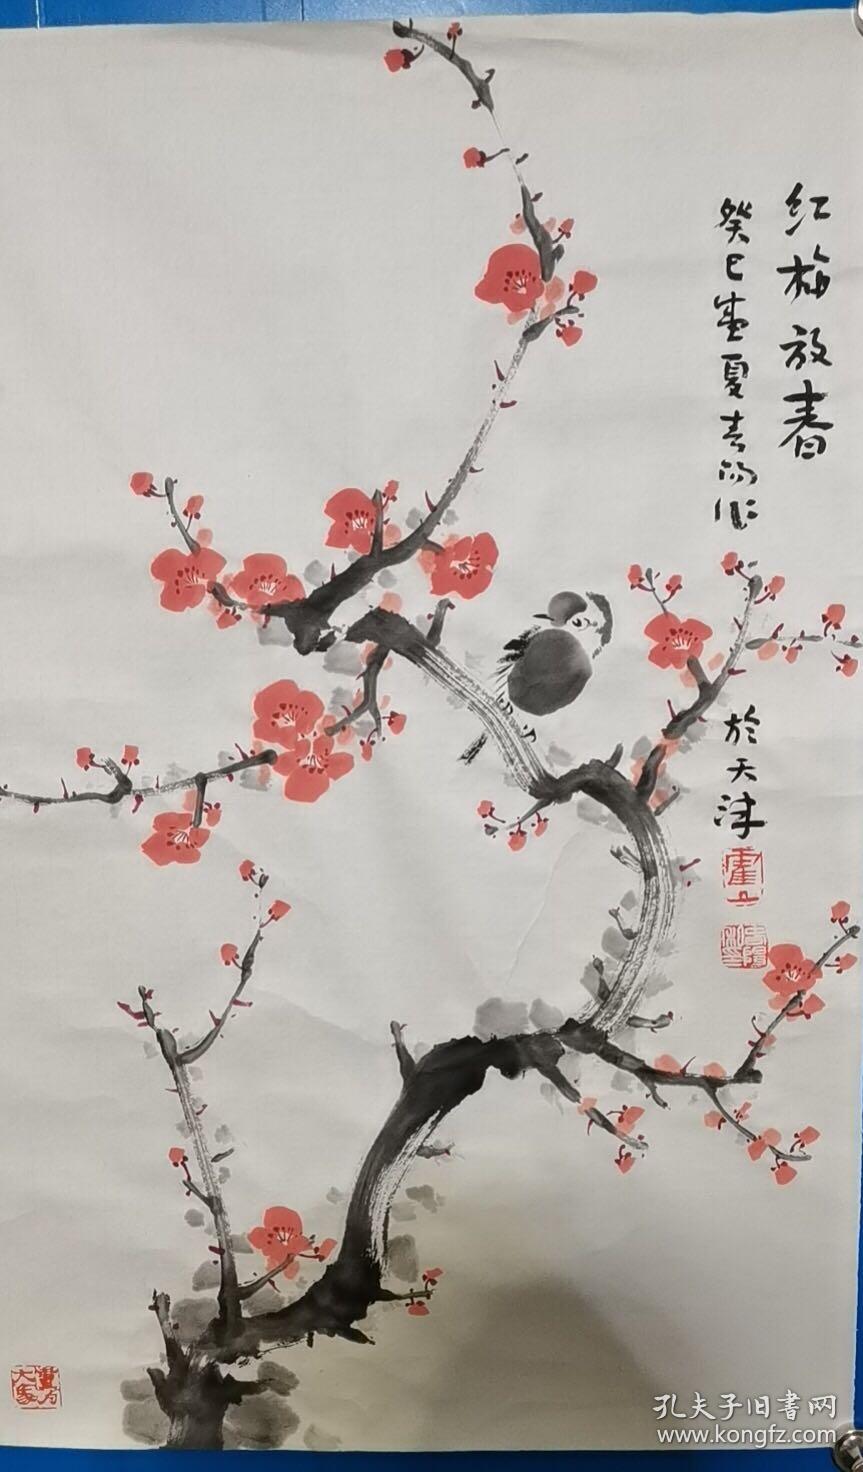 红梅放春
癸巳盛夏青阳作
於天津
孔夫子旧书网
www.kongfz.com